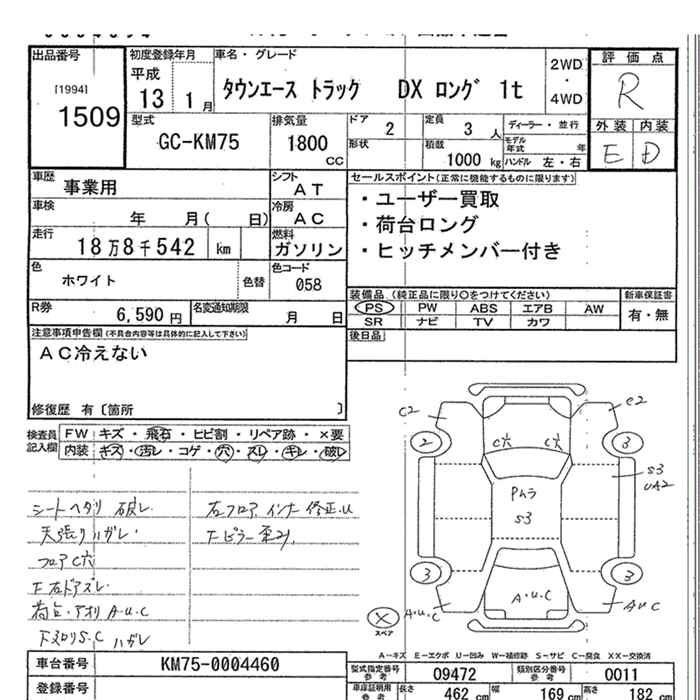 出品番号
[1994]
1509
初度登録年月
平成
13 1月
車名・グレード
タウンエース トラック DX ロング 1t
2WD
・
4WD
評価点
R
外装 内装
E D
型式
GC-KM75
排気量
1800 CC
ドア 2
定員 3 人
形状
積載 1000 kg
ディーラー・並行
モデル年式 年
ハンドル 左・右
車歴 事業用
シフト AT
車検 年 月( 日)
冷房 AC
走行 18万8千542 km
燃料 ガソリン
色 ホワイト
色替
色コード 058
R券 6,590円
名変通知期限 月 日
セールスポイント(正常に機能するものに限ります)
・ユーザー買取
・荷台ロング
・ヒッチメンバー付き
装備品(純正品に限り○をつけてください)
新車保証書
PS PW ABS エアB AW
SR ナビ TV カワ
有・無
後日品
注意事項申告欄(不具合内容等は具体的に記入して下さい)
AC冷えない
修復歴 有〔箇所 〕
検査員記入欄
FW キズ・飛石・ヒビ割・リペア跡・×要
内装 キズ・汚レ・コゲ・穴・スレ・キレ・破レ
シートヘタリ 破レ
天張りハガレ
フロアC穴
下右ドアズレ
荷台・アオリ A・U・C
下スロリS.C ハガレ
右フロア インナ 修正・U
C2
C2
2
3
C穴
C穴
S3
UA2
Pムラ
S3
3
3
A・U・C
A・U・C
AUC
×
スペア
A－キズ E－エクボ U－凹み W－補修跡 S－サビ C－腐食 XX－交換済
車台番号 KM75-0004460
登録番号
型式指定番号 参考 09472
類別区分番号 参考 0011
車庫証明用 参考
長さ 462 cm
幅 169 cm
高さ 182 cm